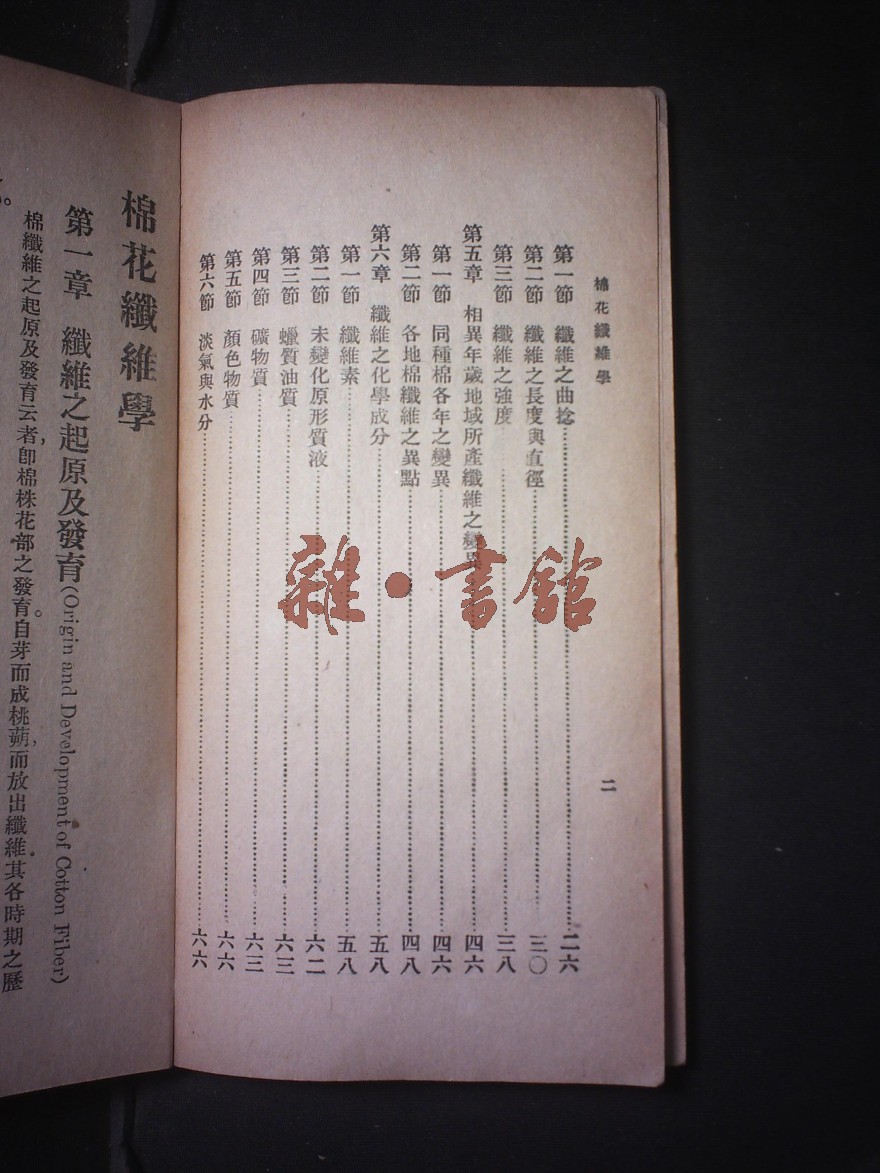 棉花纖維學
二
第一節 纖維之曲捻 二六
第二節 纖維之長度與直徑 三〇
第三節 纖維之強度 三八
第五章 相異年歲地域所產纖維之變異 四六
第一節 同種棉各年之變異 四六
第二節 各地棉纖維之異點 四八
第六章 纖維之化學成分 五八
第一節 纖維素 五八
第二節 未變化原形質液 六二
第三節 蠟質油質 六三
第四節 礦物質 六三
第五節 顏色物質 六六
第六節 淡氣與水分 六六
雜·書館
棉花纖維學
第一章 纖維之起原及發育(Origin and Development of Cotton Fiber)
棉纖維之起原及發育云者,卽棉株花部之發育。自芽而成桃蒴,而放出纖維。其各時期之歷